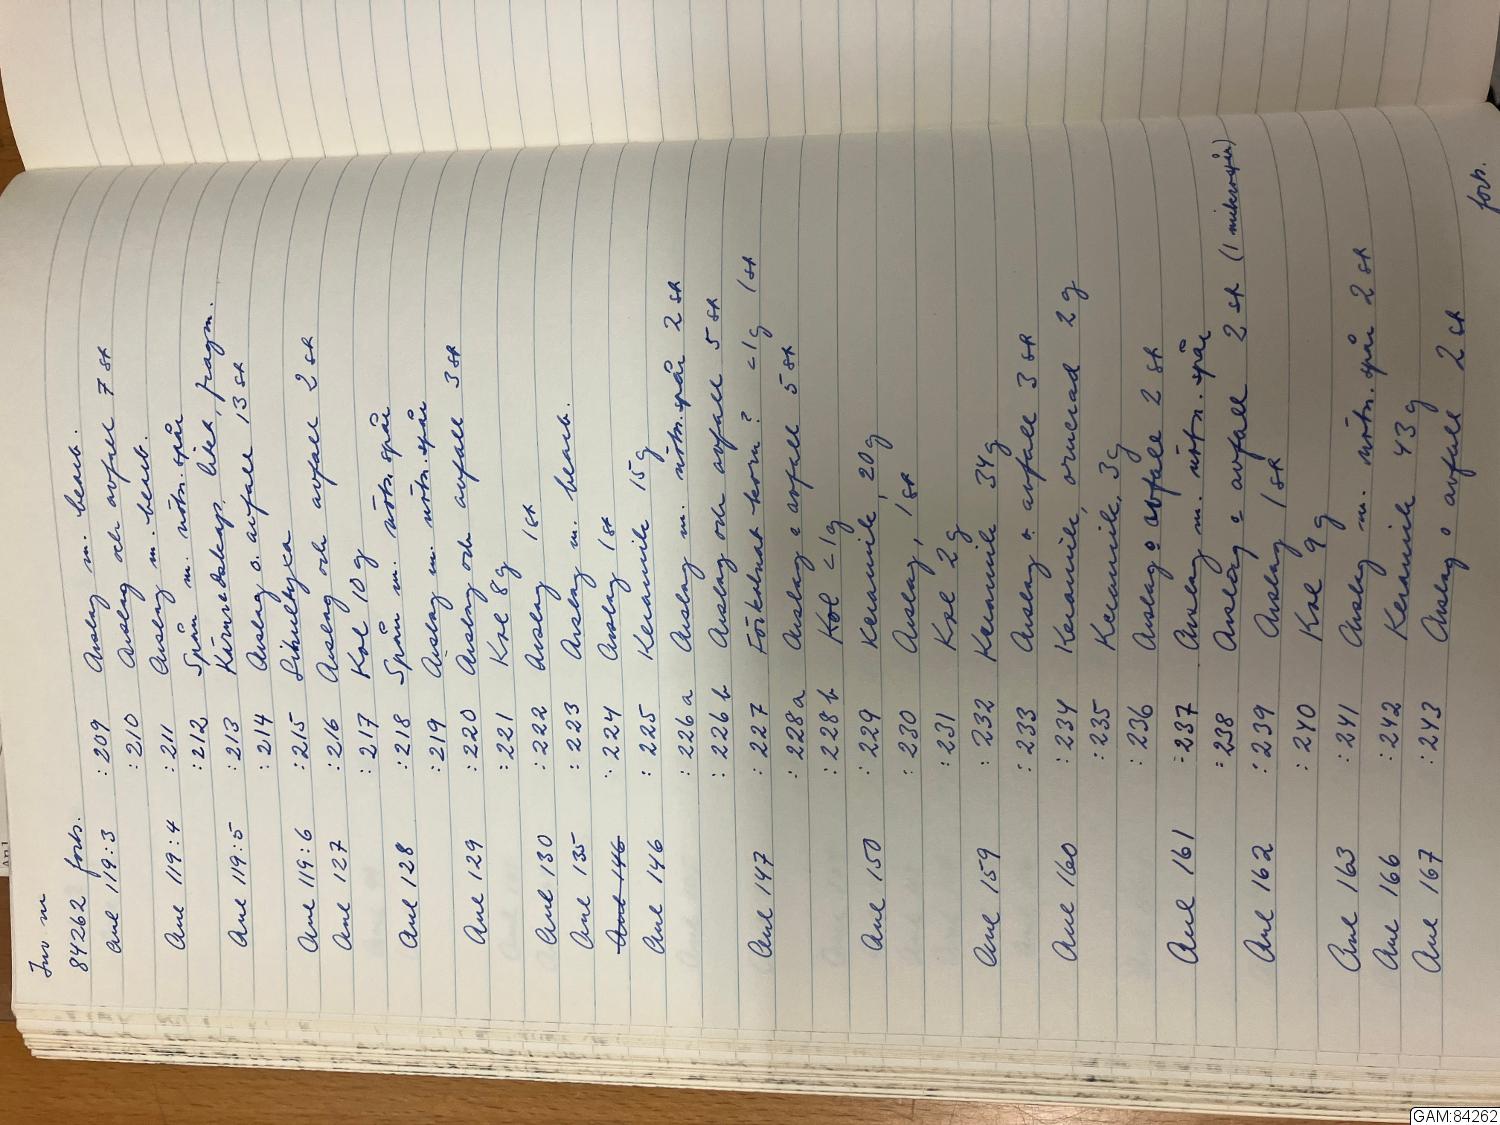 Inv nr
84262 forts.
Anl 119:3 :209 Avslag m. bearb.
:210 Avslag och avfall 7 st
Anl 119:4 :211 Avslag m. bearb.
:212 Spån m. nötn.spår
Anl 119:5 :213 Kärnredskap, likh, fragm.
:214 Avslag o. avfall 13 st
Anl 119:6 :215 Simelyxa
Anl 127 :216 Avslag och avfall 2 st
:217 Kol 10 g
Anl 128 :218 Spån m. nötn.spår
:219 Avslag m. nötn.spår
Anl 129 :220 Avslag och avfall 3 st
:221 Kol 8 g
Anl 130 :222 Avslag 1 st
Anl 135 :223 Avslag m. bearb.
Anl 146 :224 Avslag 1 st
Anl 146 :225 Keramik 15 g
:226 a Avslag m. nötn.spår 2 st
:226 b Avslag och avfall 5 st
Anl 147 :227 Förkolnat korn? <1 g 1 st
:228 a Avslag o avfall 5 st
:228 b Kol <1 g
Anl 150 :229 Keramik, 20 g
:230 Avslag, 1 st
:231 Kol 2 g
Anl 159 :232 Keramik 34 g
:233 Avslag o. avfall 3 st
Anl 160 :234 Keramik, ornerad 2 g
:235 Keramik, 3 g
:236 Avslag o avfall 2 st
Anl 161 :237 Avslag m. nötn.spår
:238 Avslag o avfall 2 st (1 mikrospån)
Anl 162 :239 Avslag 1 st
:240 Kol 9 g
Anl 163 :241 Avslag m. nötn.spår 2 st
Anl 166 :242 Keramik 43 g
Anl 167 :243 Avslag o avfall 2 st
forts.
GAM:84262